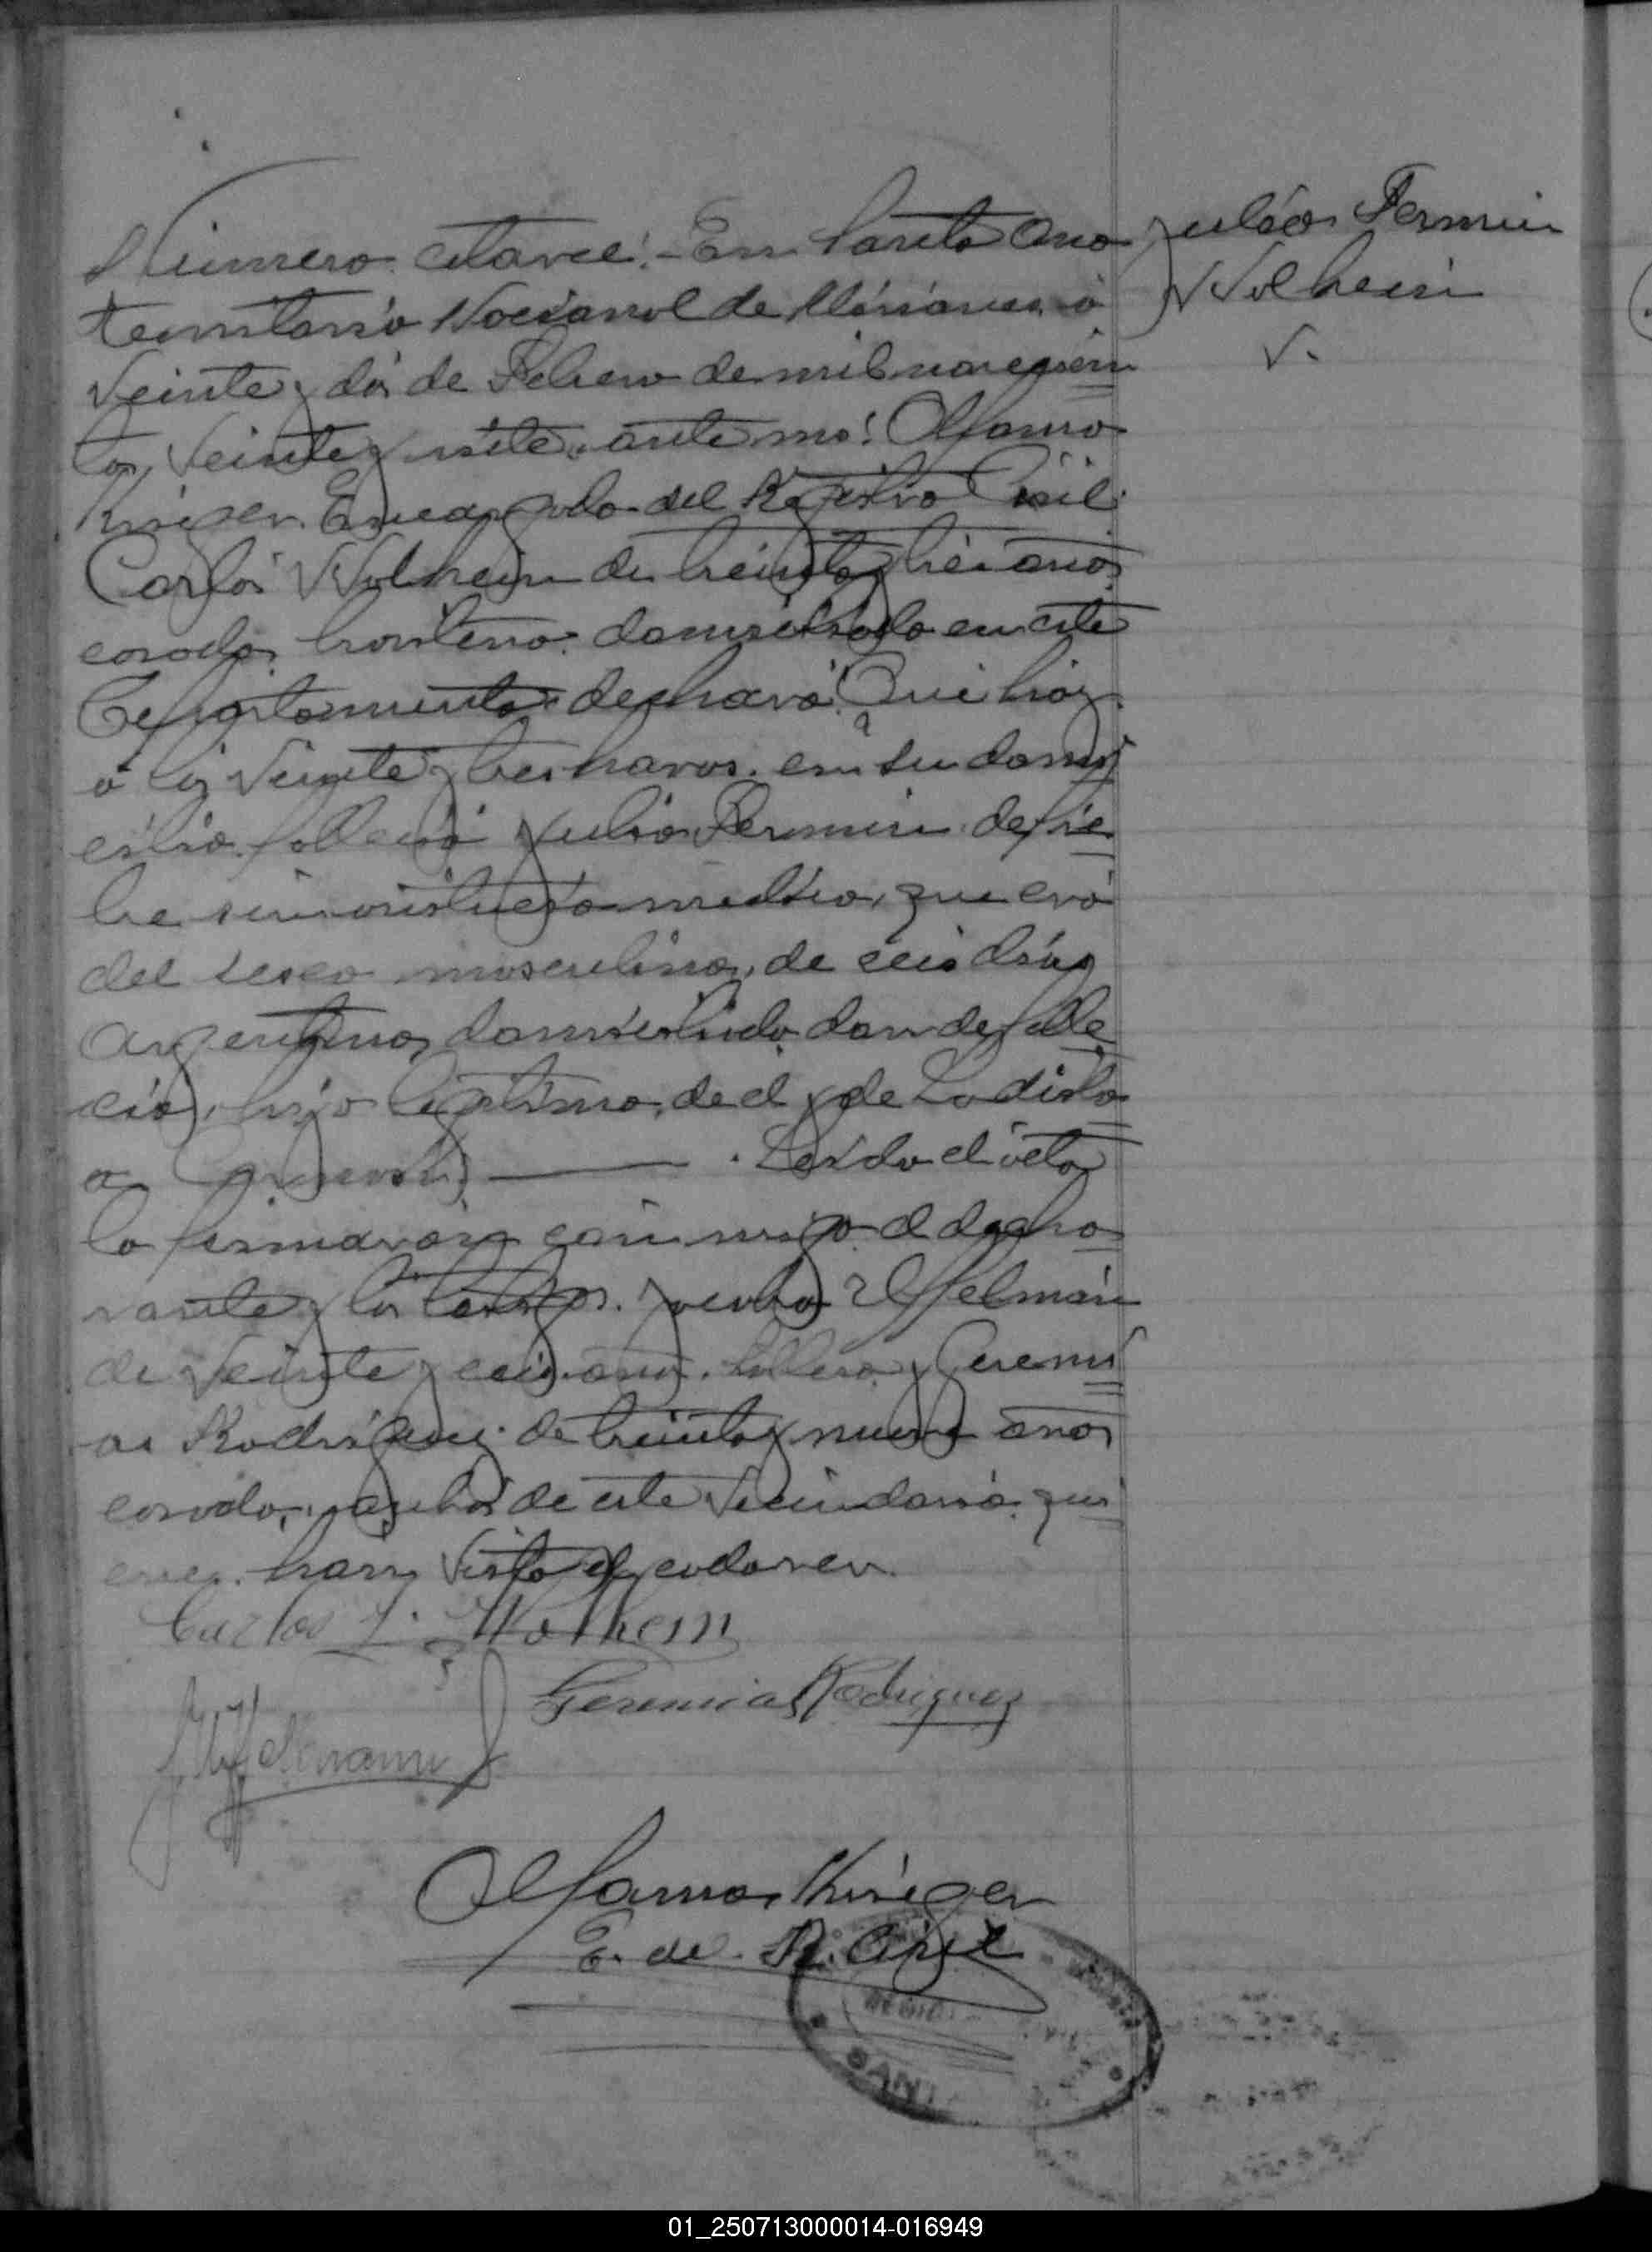 Número catorce.- En Santa Ana
territorio Nacional de Misiones a
veinte y dos de Febrero de mil novecien
tos veinte y siete, ante mi: Alfonso
Kriger Encargado del Registro Civil
Carlos Wolhein de treinta y tres años
casado domiciliado en este
Departamento declaró: Que hoy
a las veinte y tres horas en su domi
cilio falleció Julio Fermin de fie
bre sin asistencia medica, que era
del sexo masculino, de seis días
Argentino, domiciliado donde falle
ció, hijo legitimo de el y de Ladisla
a Leido el acta
la firmaron conmigo el decla
rante y los testigos
de veinte y seis años soltero y Geremi
as Rodriguez de treinta y nueve años
casado, ambos de este vecindario qui
enes han visto el cadaver
Carlos Wolhein
Geremias Rodriguez
Alfonso Kriger
E. del R. Civil
Julio Fermin
Wolhein
SANTA
01_250713000014-016949